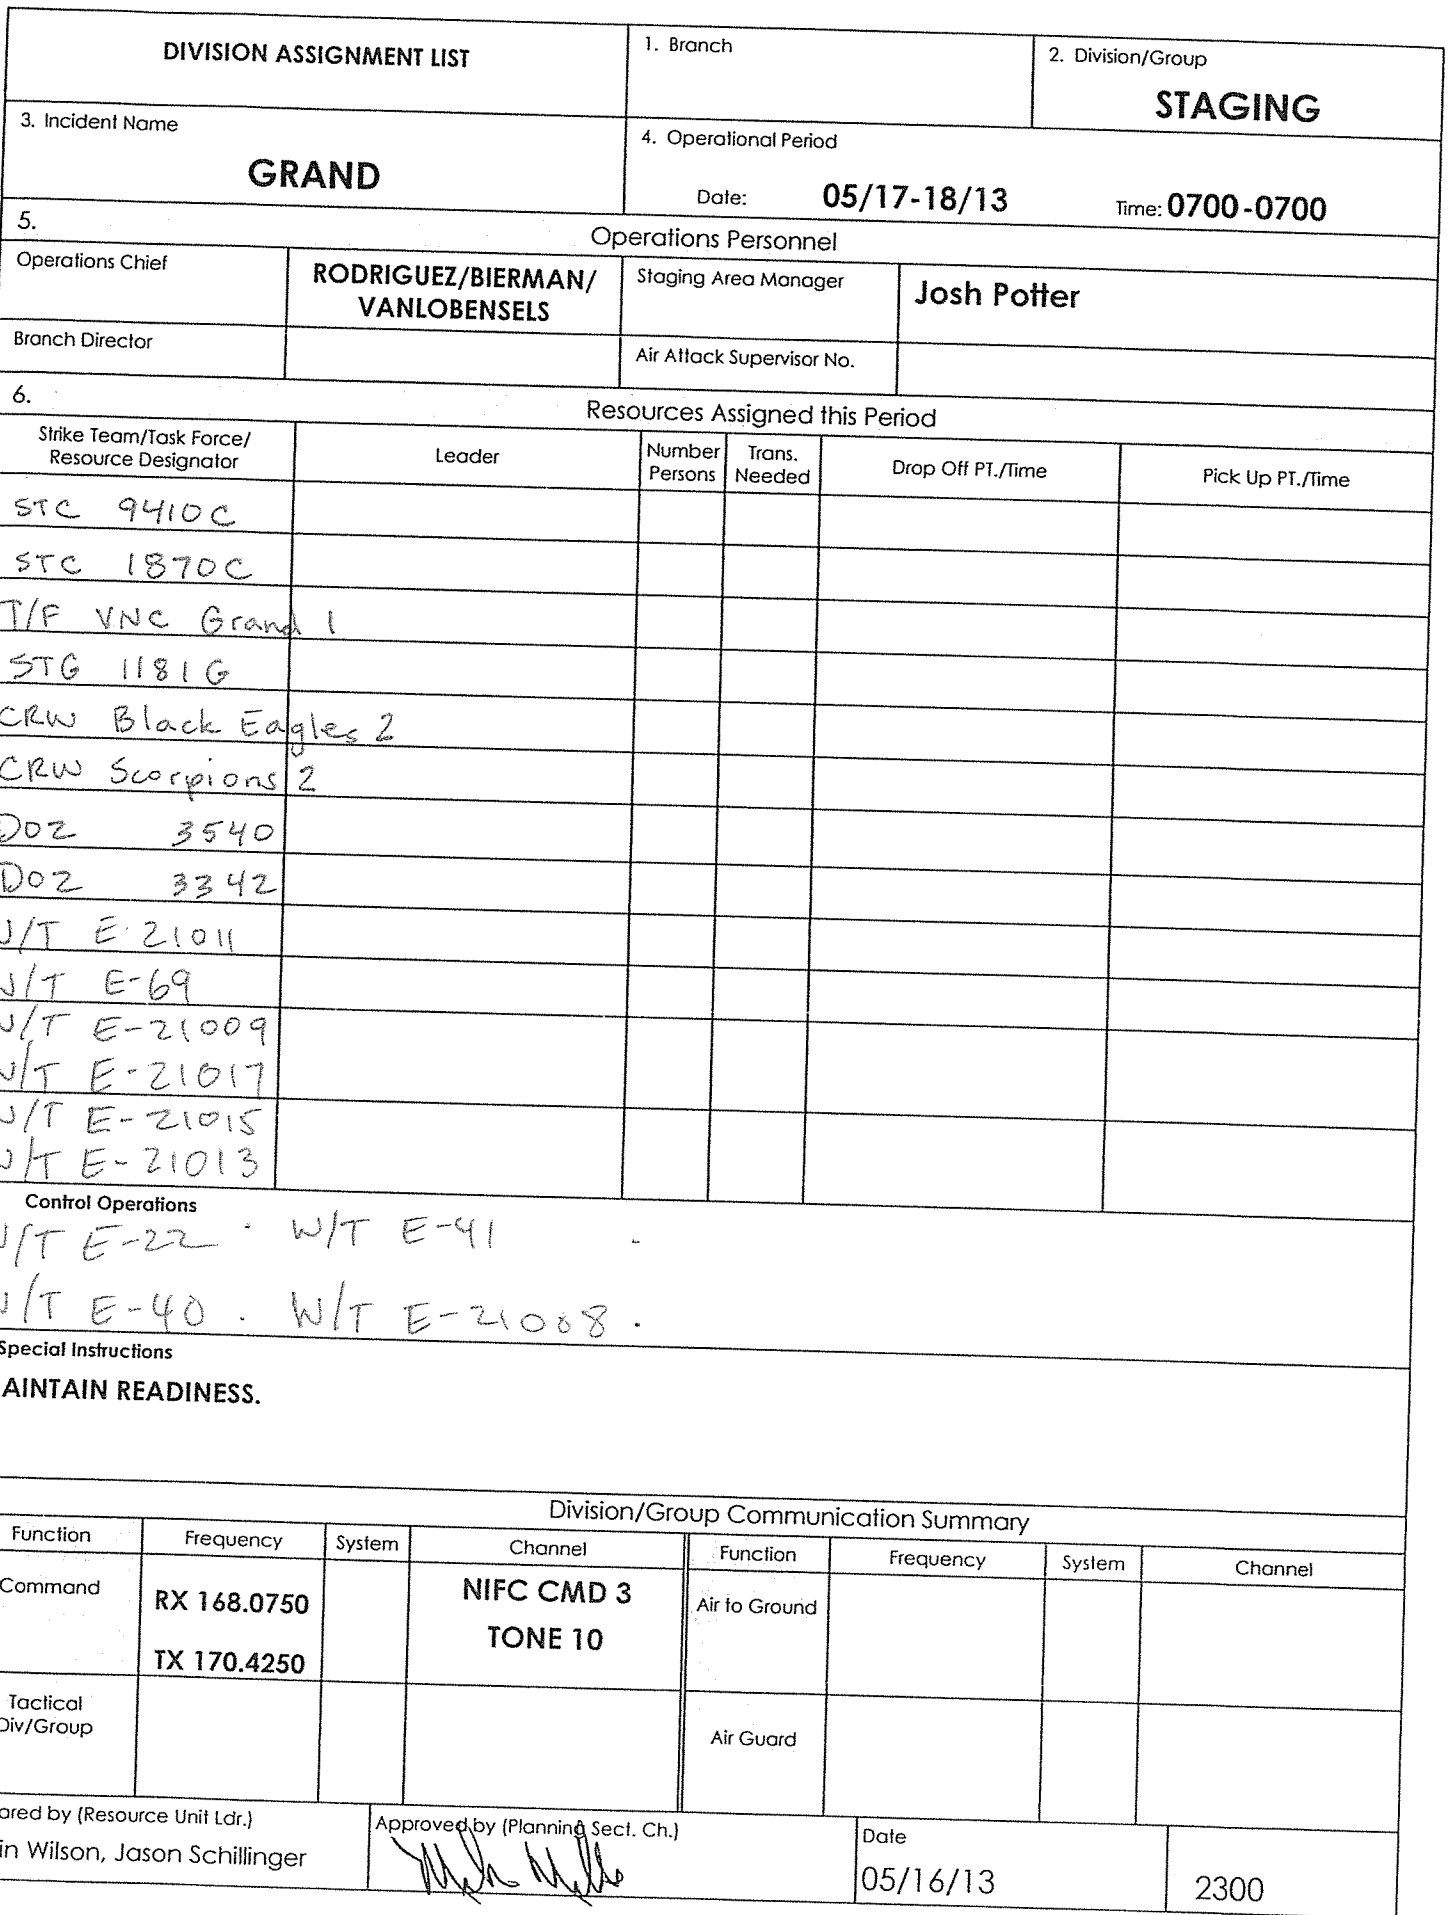 DIVISION ASSIGNMENT LIST
1. Branch
2. Division/Group
STAGING
3. Incident Name
GRAND
4. Operational Period
Date: 05/17-18/13 Time: 0700-0700
5. Operations Personnel
Operations Chief
RODRIGUEZ/BIERMAN/
VANLOBENSELS
Staging Area Manager
Josh Potter
Branch Director
Air Attack Supervisor No.
6. Resources Assigned this Period
Strike Team/Task Force/
Resource Designator
Leader
Number
Persons
Trans.
Needed
Drop Off PT./Time
Pick Up PT./Time
STC 9410C
STC 1870C
T/F VNC Grand 1
STG 1181G
CRW Black Eagles 2
CRW Scorpions 2
DOZ 3540
DOZ 3342
W/T E-21011
W/T E-69
W/T E-21009
W/T E-21017
W/T E-21015
W/T E-21013
Control Operations
W/T E-22 . W/T E-41 .
W/T E-40 . W/T E-21008 .
Special Instructions
AINTAIN READINESS.
Division/Group Communication Summary
Function Frequency System Channel Function Frequency System Channel
Command
RX 168.0750
TX 170.4250
NIFC CMD 3
TONE 10
Air to Ground
Tactical
Div/Group
Air Guard
ared by (Resource Unit Ldr.)
in Wilson, Jason Schillinger
Approved by (Planning Sect. Ch.)
Date
05/16/13
2300